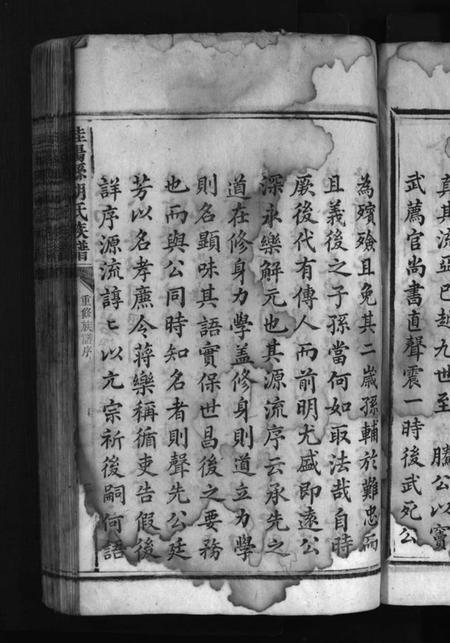 真其流亞已越九世至 騰公以寶
武薦官尚書直聲震一時後武死公
為殯殮且免其二歲孫輔於難忠而
且義後之子孫當何如取法哉自時
厥後代有傳人而前明尤盛即遠公
深永樂解元也其源流序云承先之
道在修身力學蓋修身則道立力學
則名顯味其語實保世昌後之要務
也而與公同時知名者則聲先公廷
芳以名孝廉令蔣樂稱循吏告假後
詳序源流諄〻以亢宗祈後嗣何語
氏族譜
重修族譜序